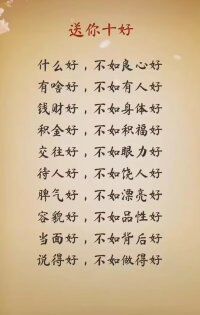 送你十好
什么好，不如良心好
有啥好，不如有人好
钱财好，不如身体好
积金好，不如积福好
交往好，不如眼力好
待人好，不如饶人好
脾气好，不如漂亮好
容貌好，不如品性好
当面好，不如背后好
说得好，不如做得好